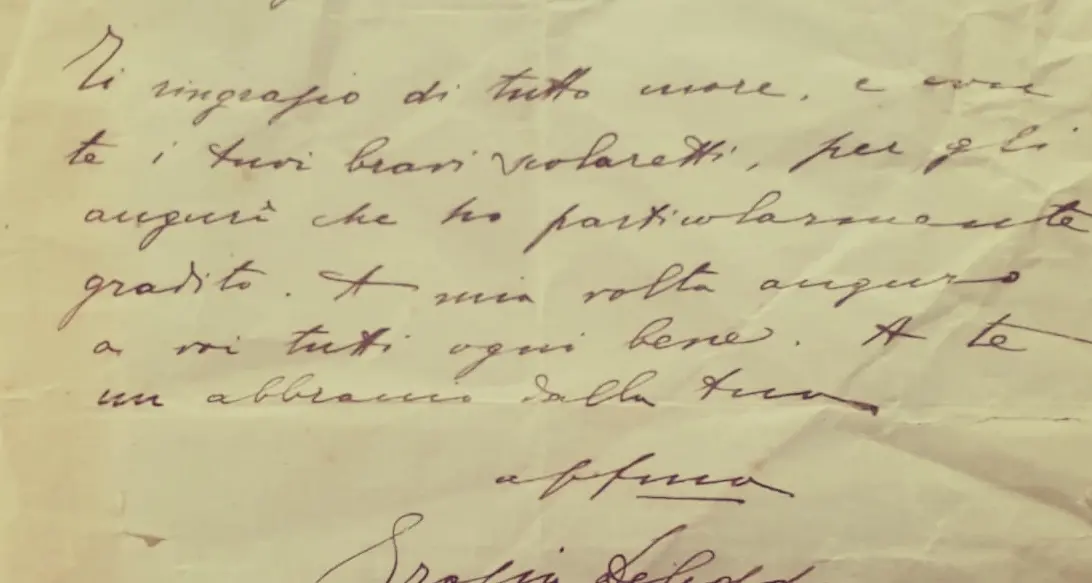 Ti ringrazio di tutto cuore, e con
te i tuoi bravi scolaretti, per gli
augurî che ho particolarmente
gradito. A mia volta auguro
a voi tutti ogni bene. A te
un abbraccio dalla tua
aff.ma
Grazia Deledda